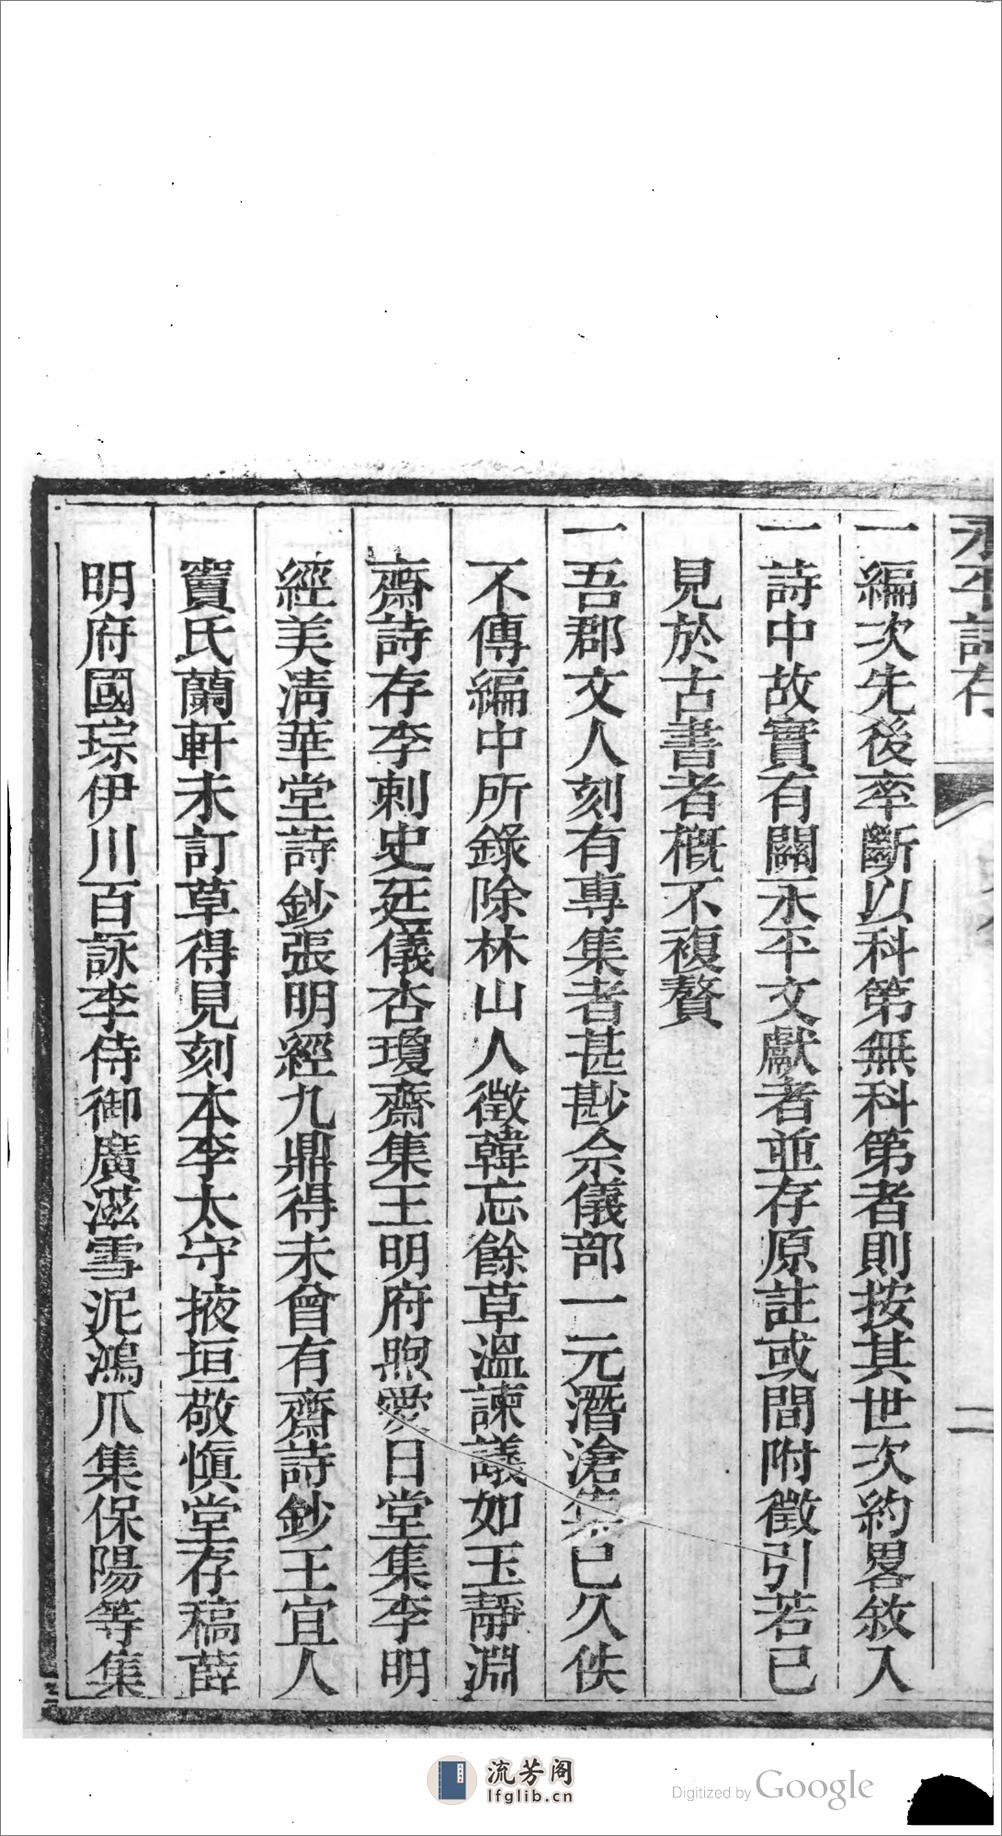 永平詩存
二
一編次先後率斷以科第無科第者則按其世次約畧敘入
一詩中故實有關永平文獻者並存原註或間附徵引若已
見於古書者槪不複贅
一吾郡文人刻有專集者甚尠佘儀部一元潛滄集已久佚
不傳編中所錄除林山人徵韓忘餘草溫諫議如玉靜淵
齋詩存李刺史廷儀杏瓊齋集王明府煦愛日堂集李明
經美淸華堂詩鈔張明經九鼎得未曾有齋詩鈔王宜人
竇氏蘭軒未訂草得見刻本李太守掖垣敬愼堂存稿薛
明府國琮伊川百詠李侍御廣滋雪泥鴻爪集保陽等集
流芳阁
lfglib.cn
Digitized by Google